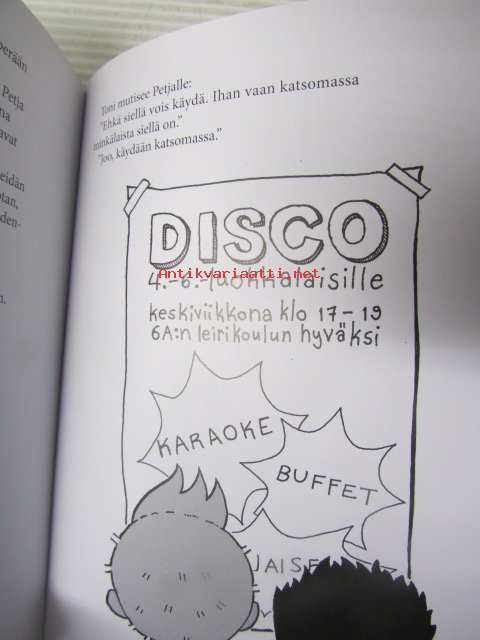 perään
Petja
na
avat
eidän
otan,
den-
n.
Toni mutisee Petjalle:
"Ehkä siellä vois käydä. Ihan vaan katsomassa
minkälaista siellä on."
"Joo, käydään katsomassa."
DISCO
4.-6.-luokkalaisille
Antikvariaatti.net
keskiviikkona klo 17-19
6A:n leirikoulun hyväksi
KARAOKE
BUFFET